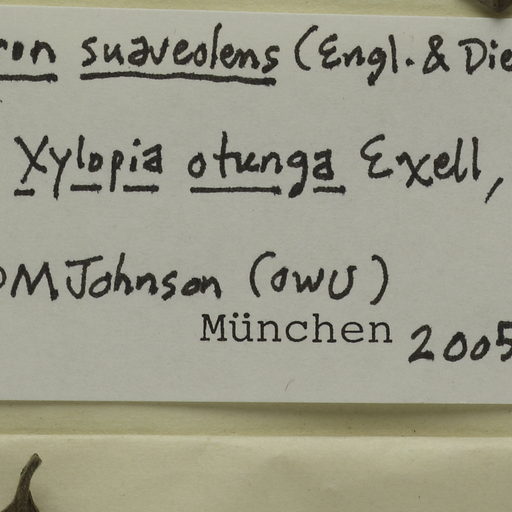 ron suaveolens (Engl. & Die
Xylopia otunga Exell,
DMJohnson (OWU)
München 2005